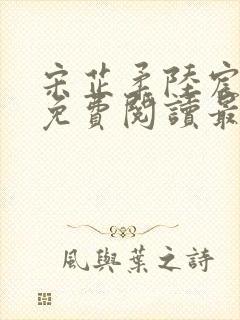 宋芷柔陸宸
免費閱讀最
風與葉之詩